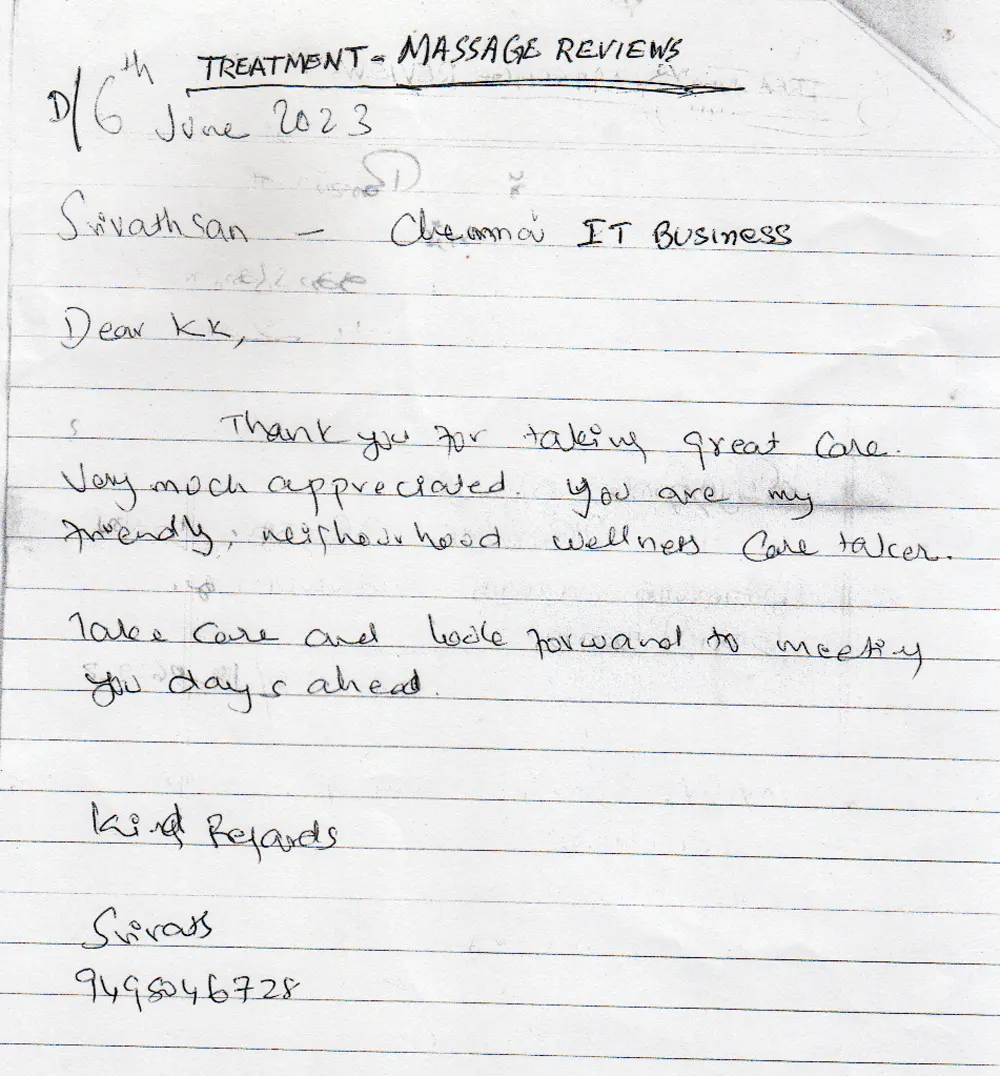 TREATMENT - MASSAGE REVIEWS
D/6th June 2023
Srivathsan - Chennai IT Business
Dear KK,
Thank you for taking great care.
Very much appreciated. You are my
friendly, neighbourhood wellness care taker.
Take care and look forward to meeting
you days ahead.
Kind Regards
Srivats
9498046728